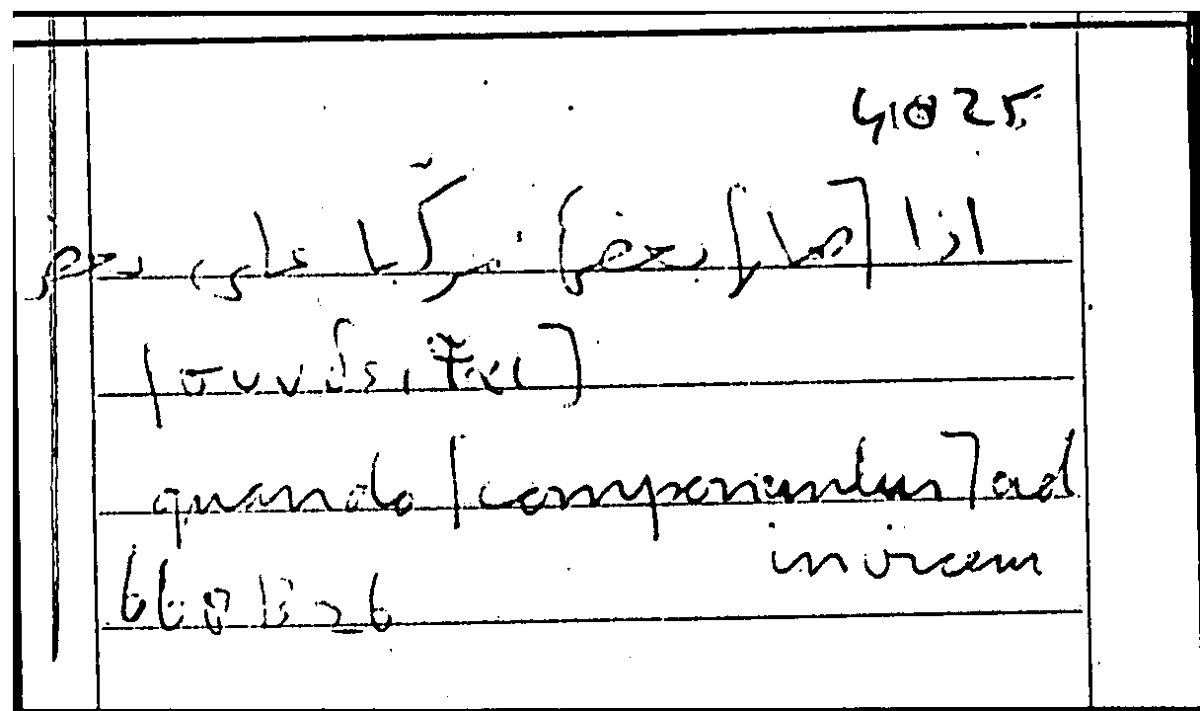 41025
اذا [صار] بعض] مركّبا على بعض
[συνδεῖται]
quando [componuntur] ad
invicem